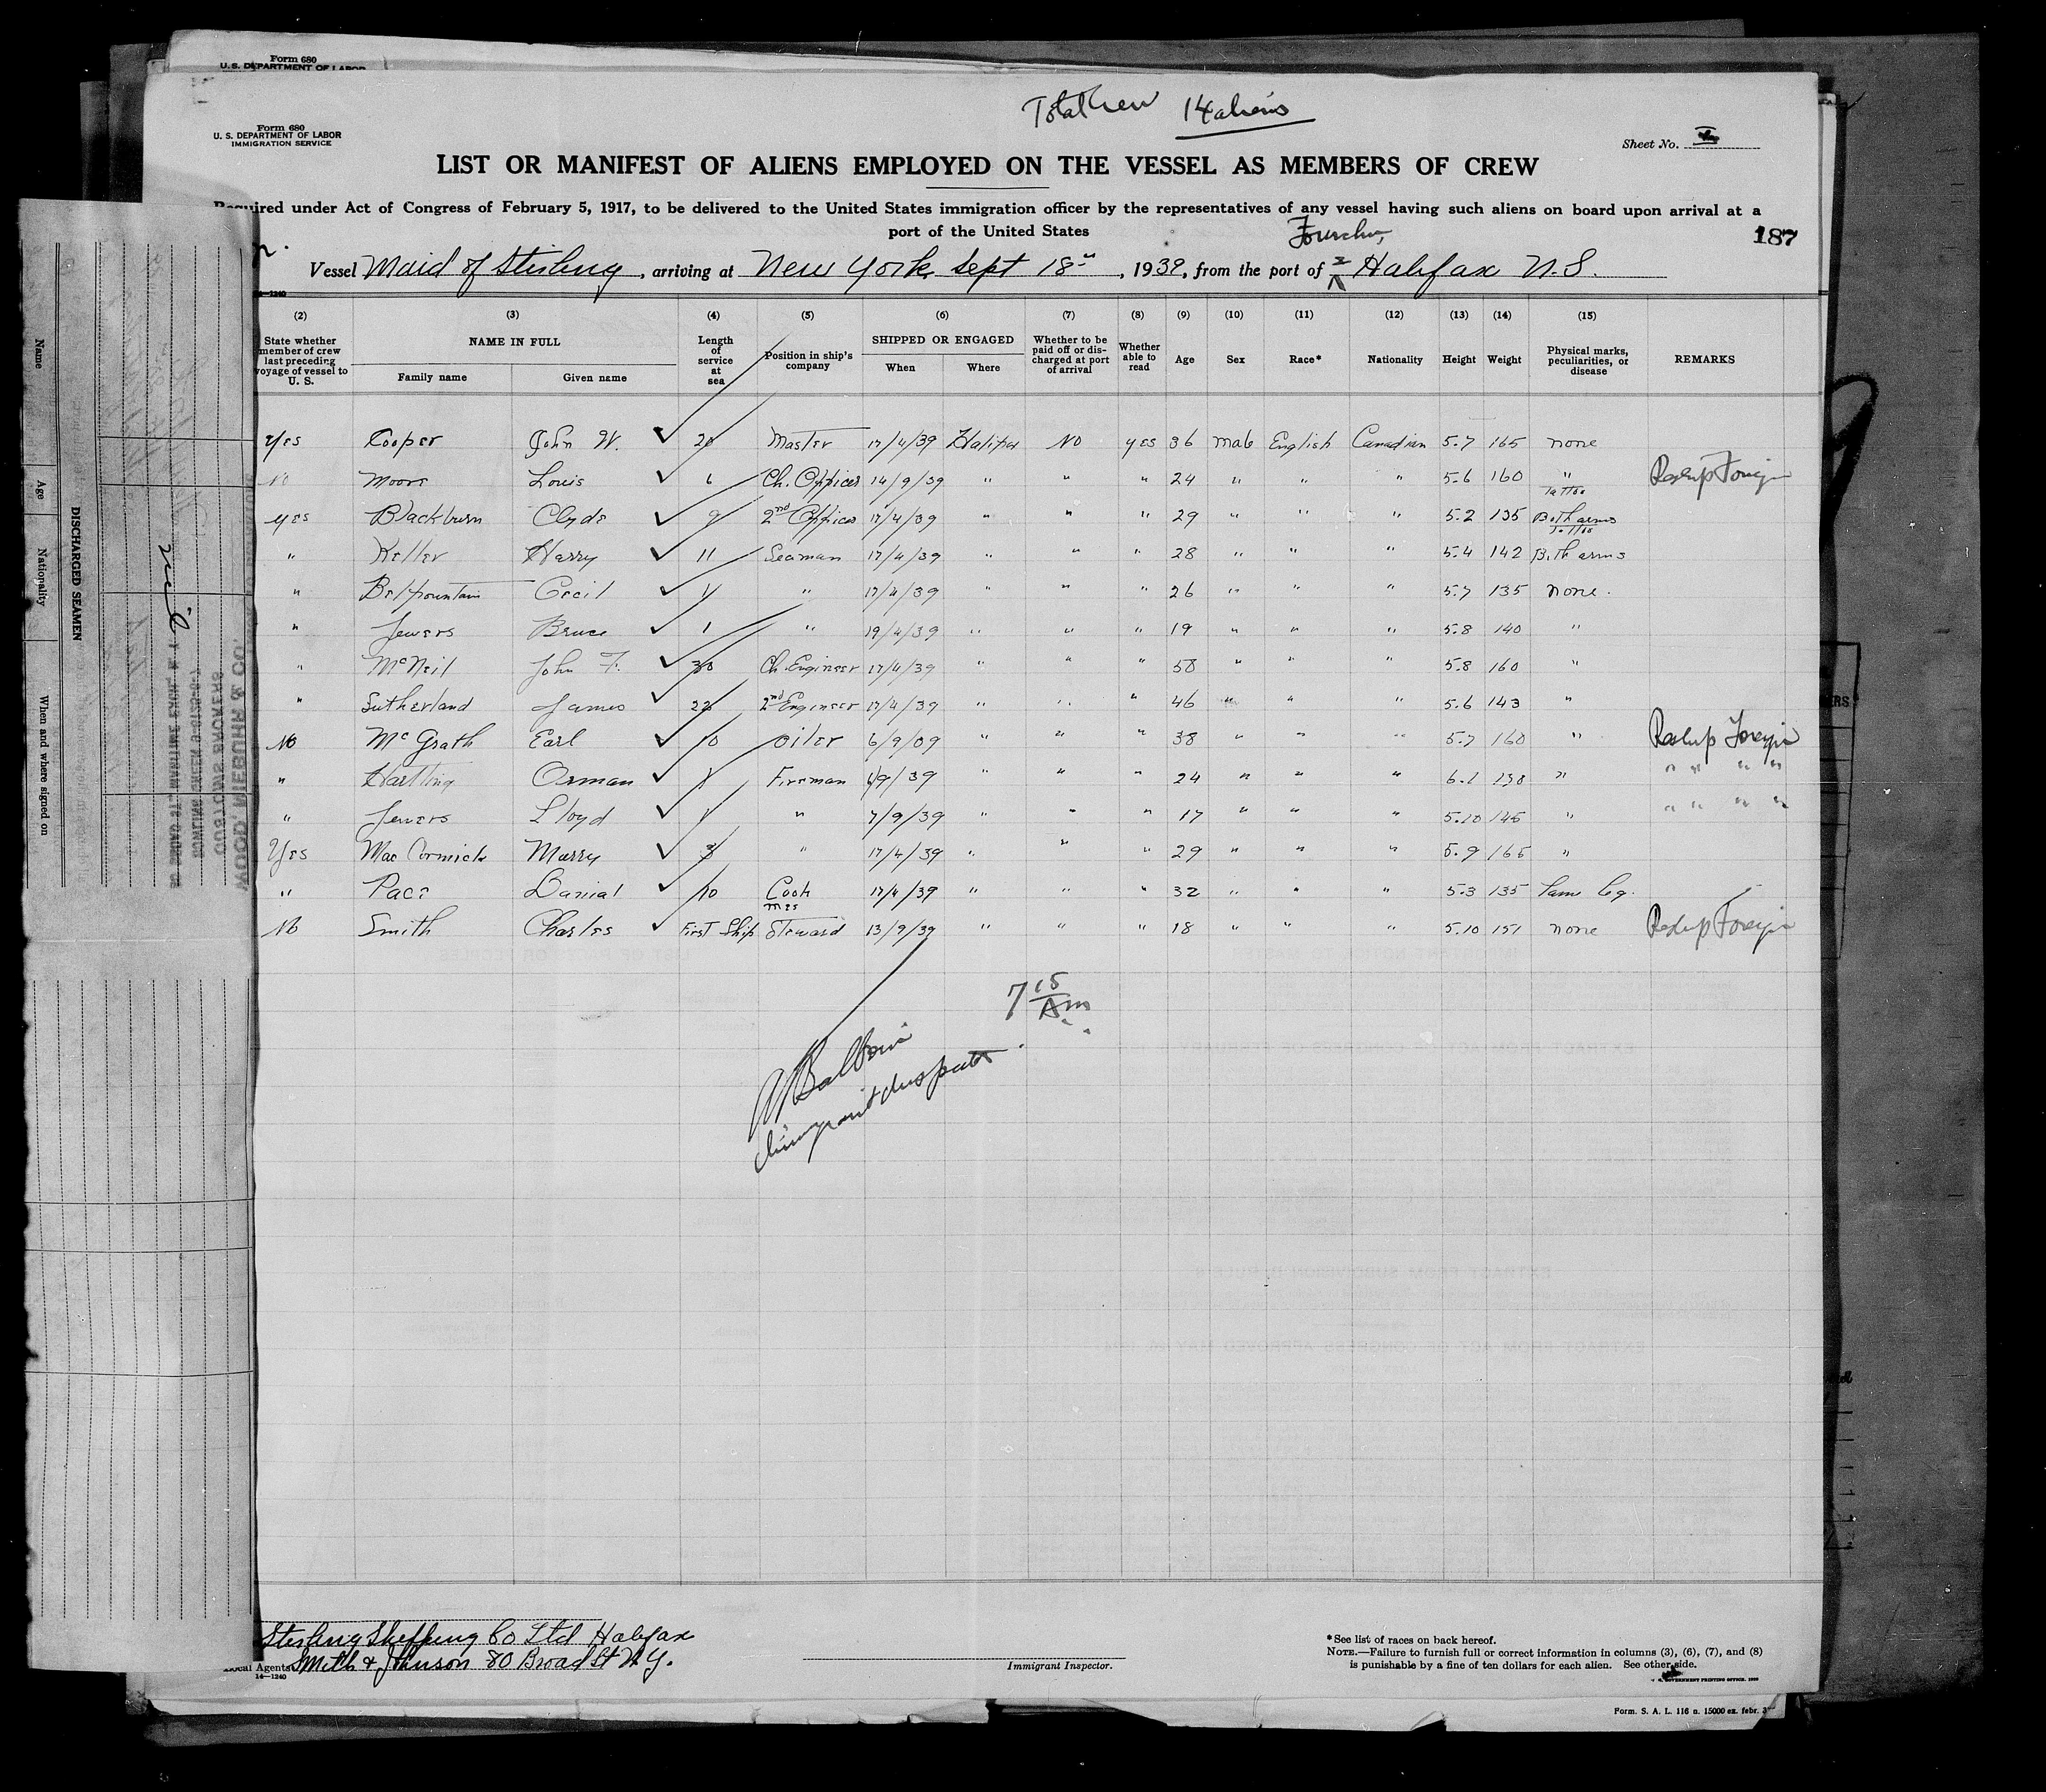 Form 680
U. S. DEPARTMENT OF LABOR
Total Crew 14 aliens
Form 680
U. S. DEPARTMENT OF LABOR
IMMIGRATION SERVICE
Sheet No.
LIST OR MANIFEST OF ALIENS EMPLOYED ON THE VESSEL AS MEMBERS OF CREW
Required under Act of Congress of February 5, 1917, to be delivered to the United States immigration officer by the representatives of any vessel having such aliens on board upon arrival at a
port of the United States
187
Vessel Maid of Stirling, arriving at New York, Sept 18, 1939, from the port of Halifax N.S.
14—1240
(2) (3) (4) (5) (6) (7) (8) (9) (10) (11) (12) (13) (14) (15)
State whether member of crew last preceding voyage of vessel to U. S.
NAME IN FULL
Family name Given name
Length of service at sea
Position in ship's company
SHIPPED OR ENGAGED
When Where
Whether to be paid off or discharged at port of arrival
Whether able to read
Age Sex Race* Nationality Height Weight
Physical marks, peculiarities, or disease
REMARKS
Yes Cooper John W. 20 Master 17/4/39 Halifax No yes 36 male English Canadian 5.7 165 none
No Moore Louis 6 Ch. Officer 14/9/39 " " " 24 " " " 5.6 160 " Reshup Foreign
Tattoo
yes Blackburn Clyde 9 2nd Officer 17/4/39 " " " 29 " " " 5.2 135 Both arms
Tattoo
" Keller Harry 11 Seaman 17/4/39 " " " 28 " " " 5.4 142 Both arms
" Belfountain Cecil 1 " 17/4/39 " " " 26 " " " 5.7 135 none.
" Jewers Bruce 1 " 19/4/39 " " " 19 " " " 5.8 140 "
" McNeil John F. 30 Ch. Engineer 17/4/39 " " 58 " " " 5.8 160 "
" Sutherland James 22 2nd Engineer 17/4/39 " " " 46 " " " 5.6 143 "
No McGrath Earl 10 oiler 6/9/09 " " " 38 " " " 5.7 160 " Reshup Foreign
" Hartling Orman 1 Fireman /9/39 " " " 24 " " " 6.1 " " " " "
" Jewers Lloyd 1 " 7/9/39 " " " 17 " " " 5.10 145 " " " " "
Yes MacCormick Murry 3 " 17/4/39 " " " 29 " " " 5.9 165 "
" Pace Danial 10 Cook 17/4/39 " " " 32 " " " 5.3 135 Lame leg.
No Smith Charles First Ship Mes Steward 13/9/39 " " " 18 " " " 5.10 151 none Reshup Foreign
7 15 Am
Stirling Shipping Co Ltd Halifax
Local Agents Smith & Johnson 80 Broad St N.Y.
14—1240
Immigrant Inspector.
*See list of races on back hereof.
NOTE.—Failure to furnish full or correct information in columns (3), (6), (7), and (8)
is punishable by a fine of ten dollars for each alien. See other side.
Form. S. A. L. 116 a. 15000 ex. febr.
DISCHARGED SEAMEN
Name
Age
Nationality
When and where signed on
WOOD, NIEBUHR & CO.
CUSTOMS BROKERS